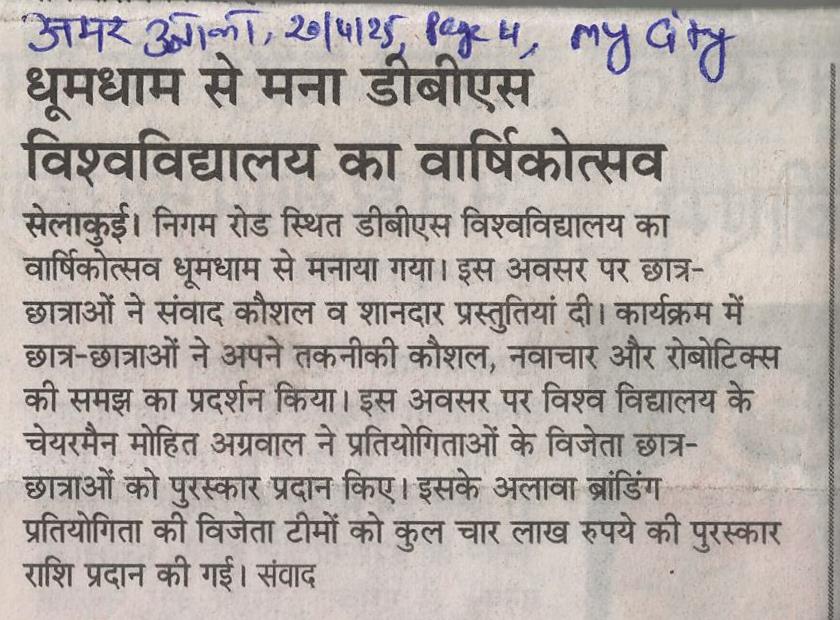 अमर उजाला, 20/4/25, Page 4, my City
धूमधाम से मना डीबीएस
विश्वविद्यालय का वार्षिकोत्सव
सेलाकुई। निगम रोड स्थित डीबीएस विश्वविद्यालय का
वार्षिकोत्सव धूमधाम से मनाया गया। इस अवसर पर छात्र-
छात्राओं ने संवाद कौशल व शानदार प्रस्तुतियां दी। कार्यक्रम में
छात्र-छात्राओं ने अपने तकनीकी कौशल, नवाचार और रोबोटिक्स
की समझ का प्रदर्शन किया। इस अवसर पर विश्व विद्यालय के
चेयरमैन मोहित अग्रवाल ने प्रतियोगिताओं के विजेता छात्र-
छात्राओं को पुरस्कार प्रदान किए। इसके अलावा ब्रांडिंग
प्रतियोगिता की विजेता टीमों को कुल चार लाख रुपये की पुरस्कार
राशि प्रदान की गई। संवाद